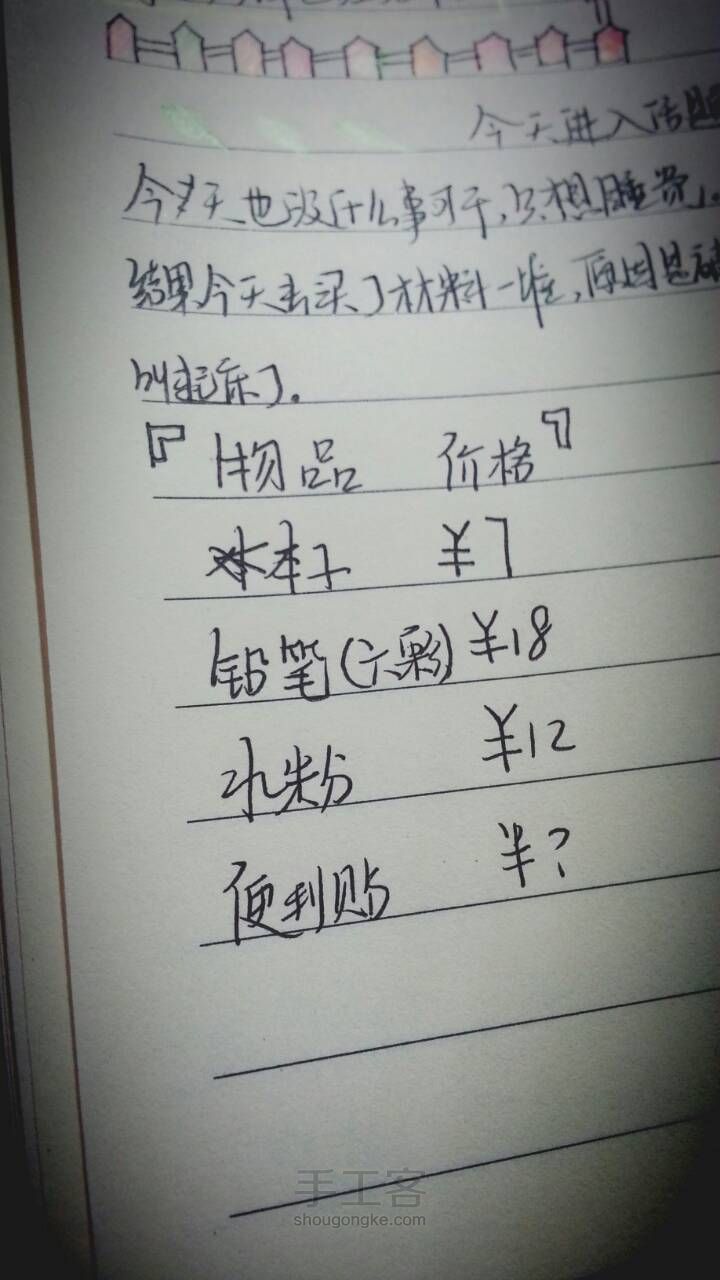 今天进入话题
今天也没什么事可干,只想睡觉,
结果今天去买了材料一堆,原因是被
叫起床了.
『物品 价格』
本子 ¥7
铅笔(六彩) ¥18
水粉 ¥12
便利贴 ¥?
手工客
shougongke.com